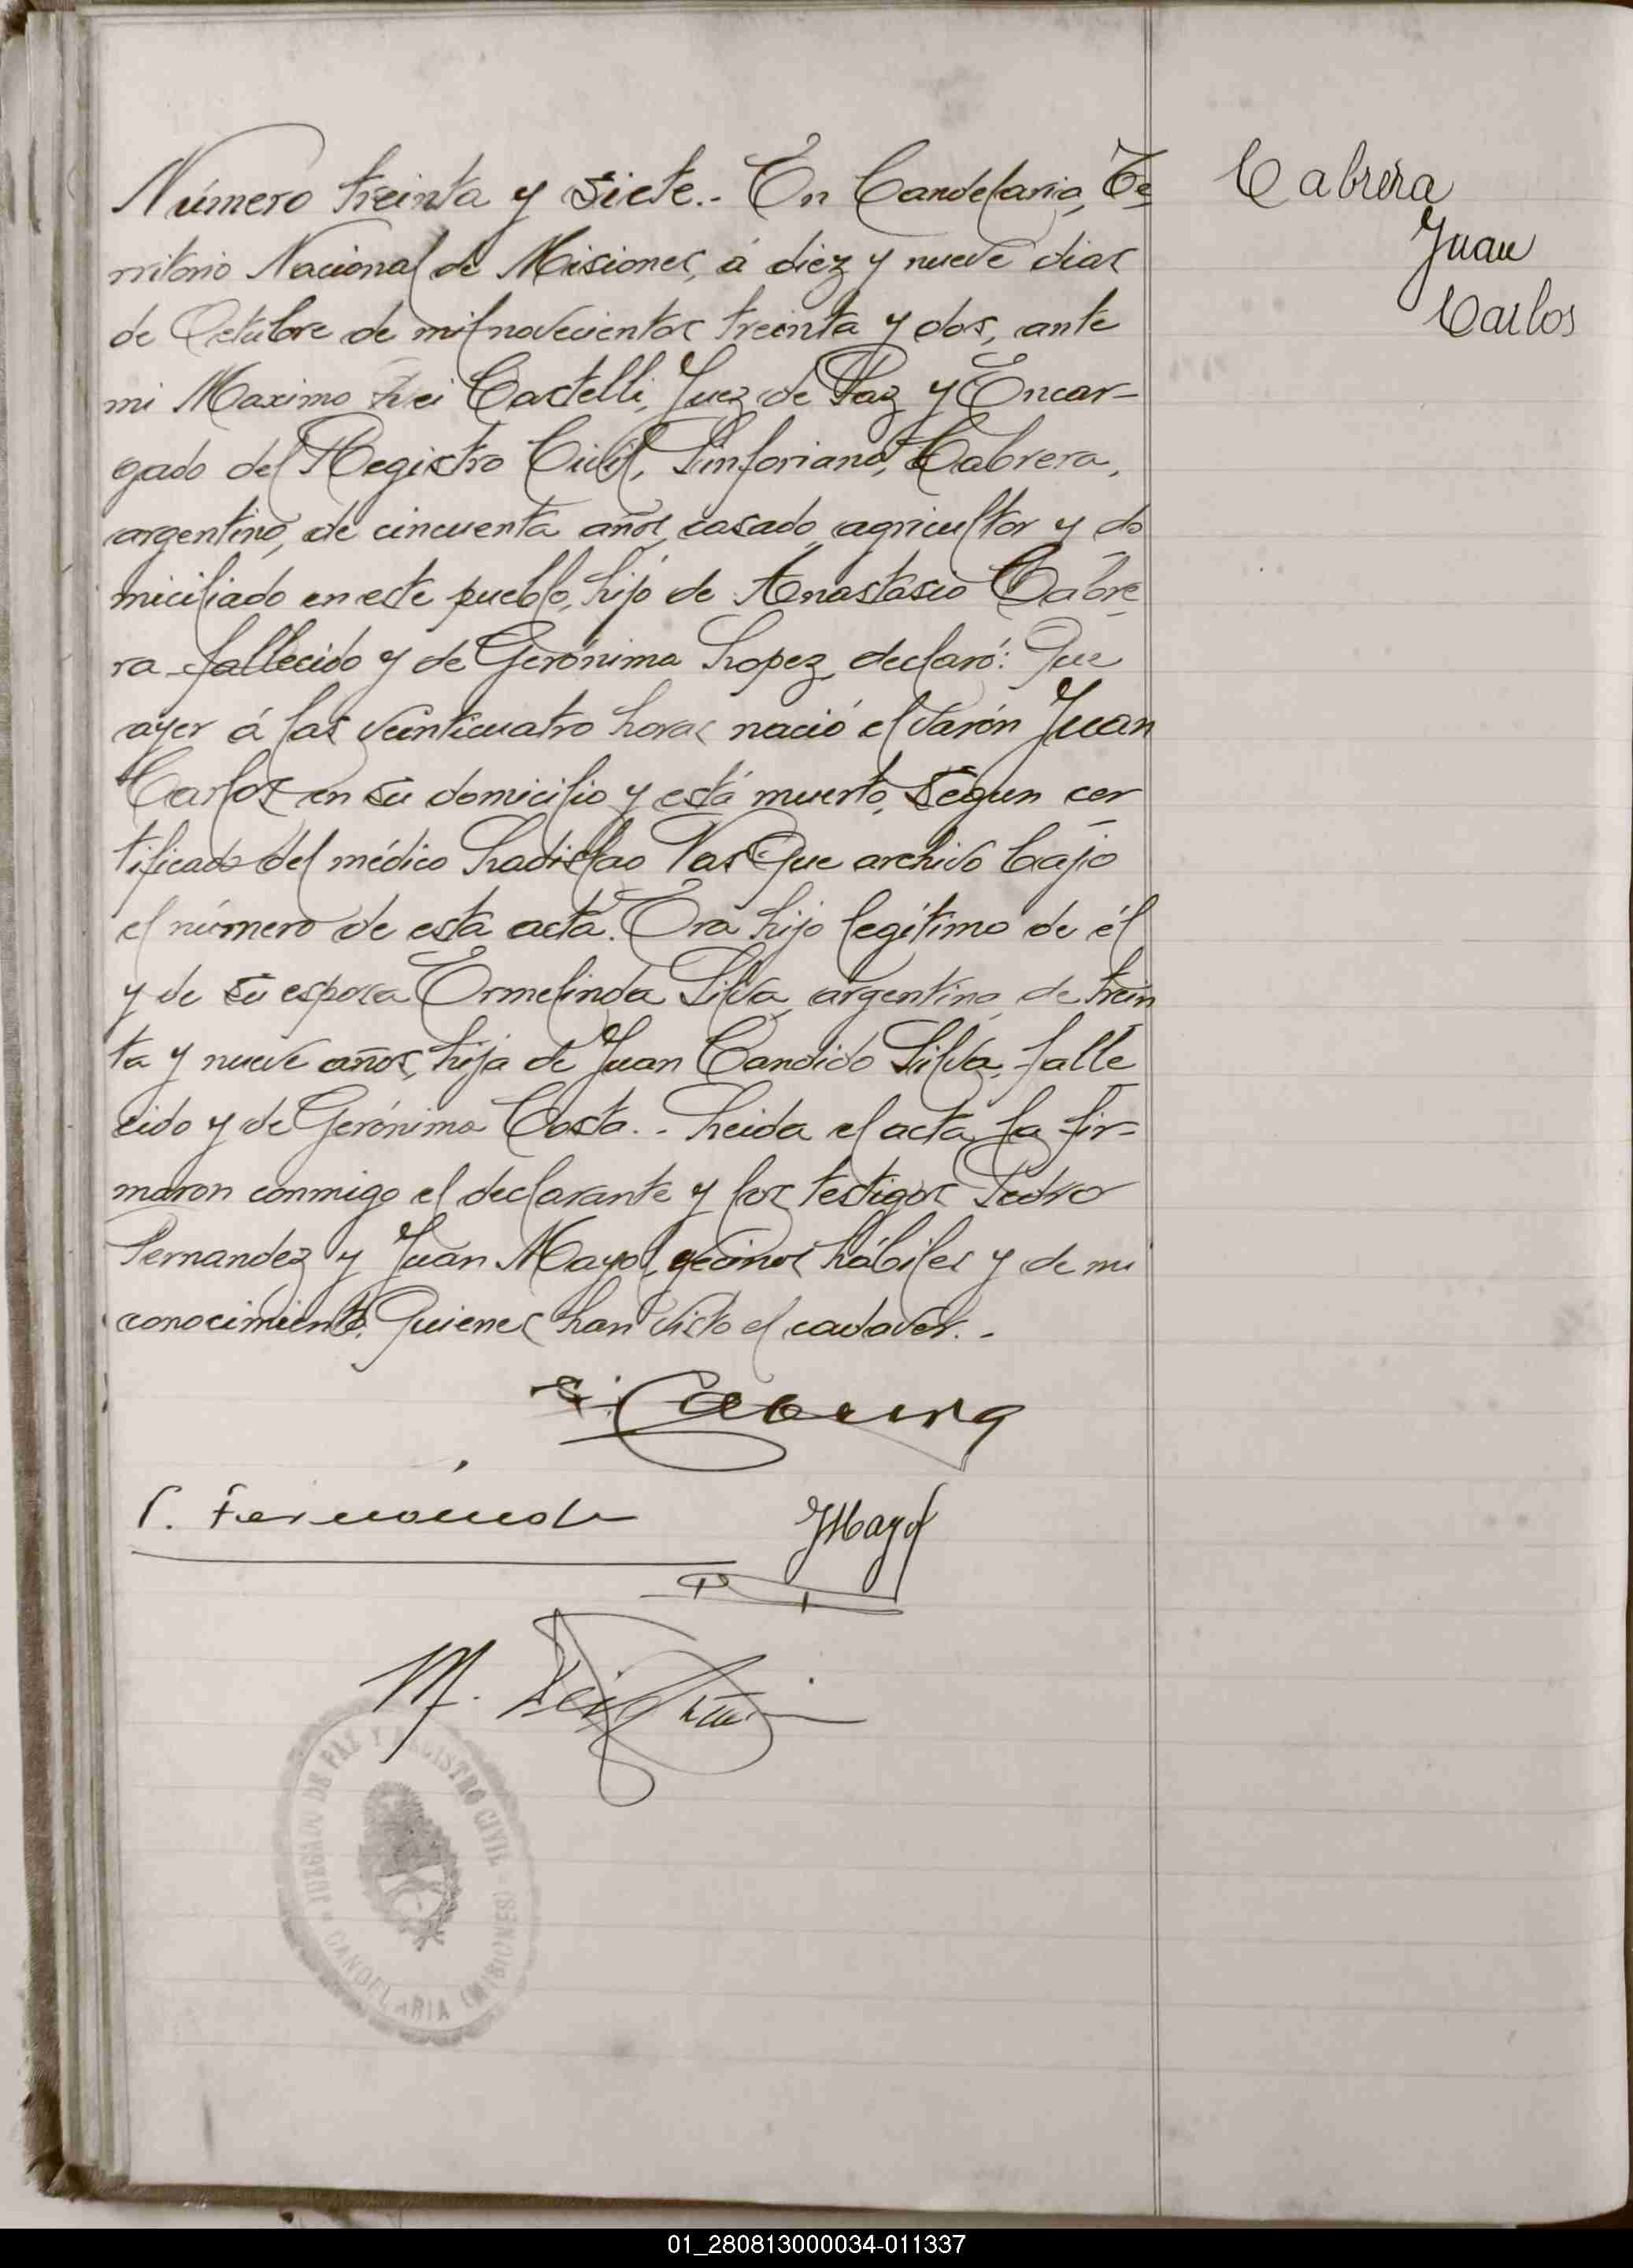 Número treinta y siete.- En Candelaria, Te-
rritorio Nacional de Misiones, á diez y nueve dias
de Octubre de mil novecientos treinta y dos, ante
mi Maximo Lei Castelli, Juez de Paz y Encar-
gado del Registro Civil, Sinforiano Cabrera,
argentino, de cincuenta años, casado, agricultor y do
miciliado en este pueblo, hijo de Anastasio Cabre
ra fallecido y de Gerónima Lopez, declaró: Que
ayer á las veinticuatro horas nació el varón Juan
Carlos en su domicilio y está muerto, segun cer
tificado del médico Ladislao Vas Que archivo bajo
el número de esta acta. Era hijo legítimo de él
y de su esposa Ermelinda Silva, argentina, de trein
ta y nueve años, hija de Juan Candido Silva, falle
cido y de Gerónima Costa.- Leida el acta la fir-
maron conmigo el declarante y los testigos Pedro
Fernandez y Juan Mayol, vecinos hábiles y de mi
conocimiento, Quienes han visto el cadaver.-
S. Cabrera
P. Fernández
JMayol
M. Lei
Cabrera
Juan
Carlos
JUZGADO DE PAZ Y REGISTRO CIVIL
CANDELARIA (MISIONES)
01_280813000034-011337